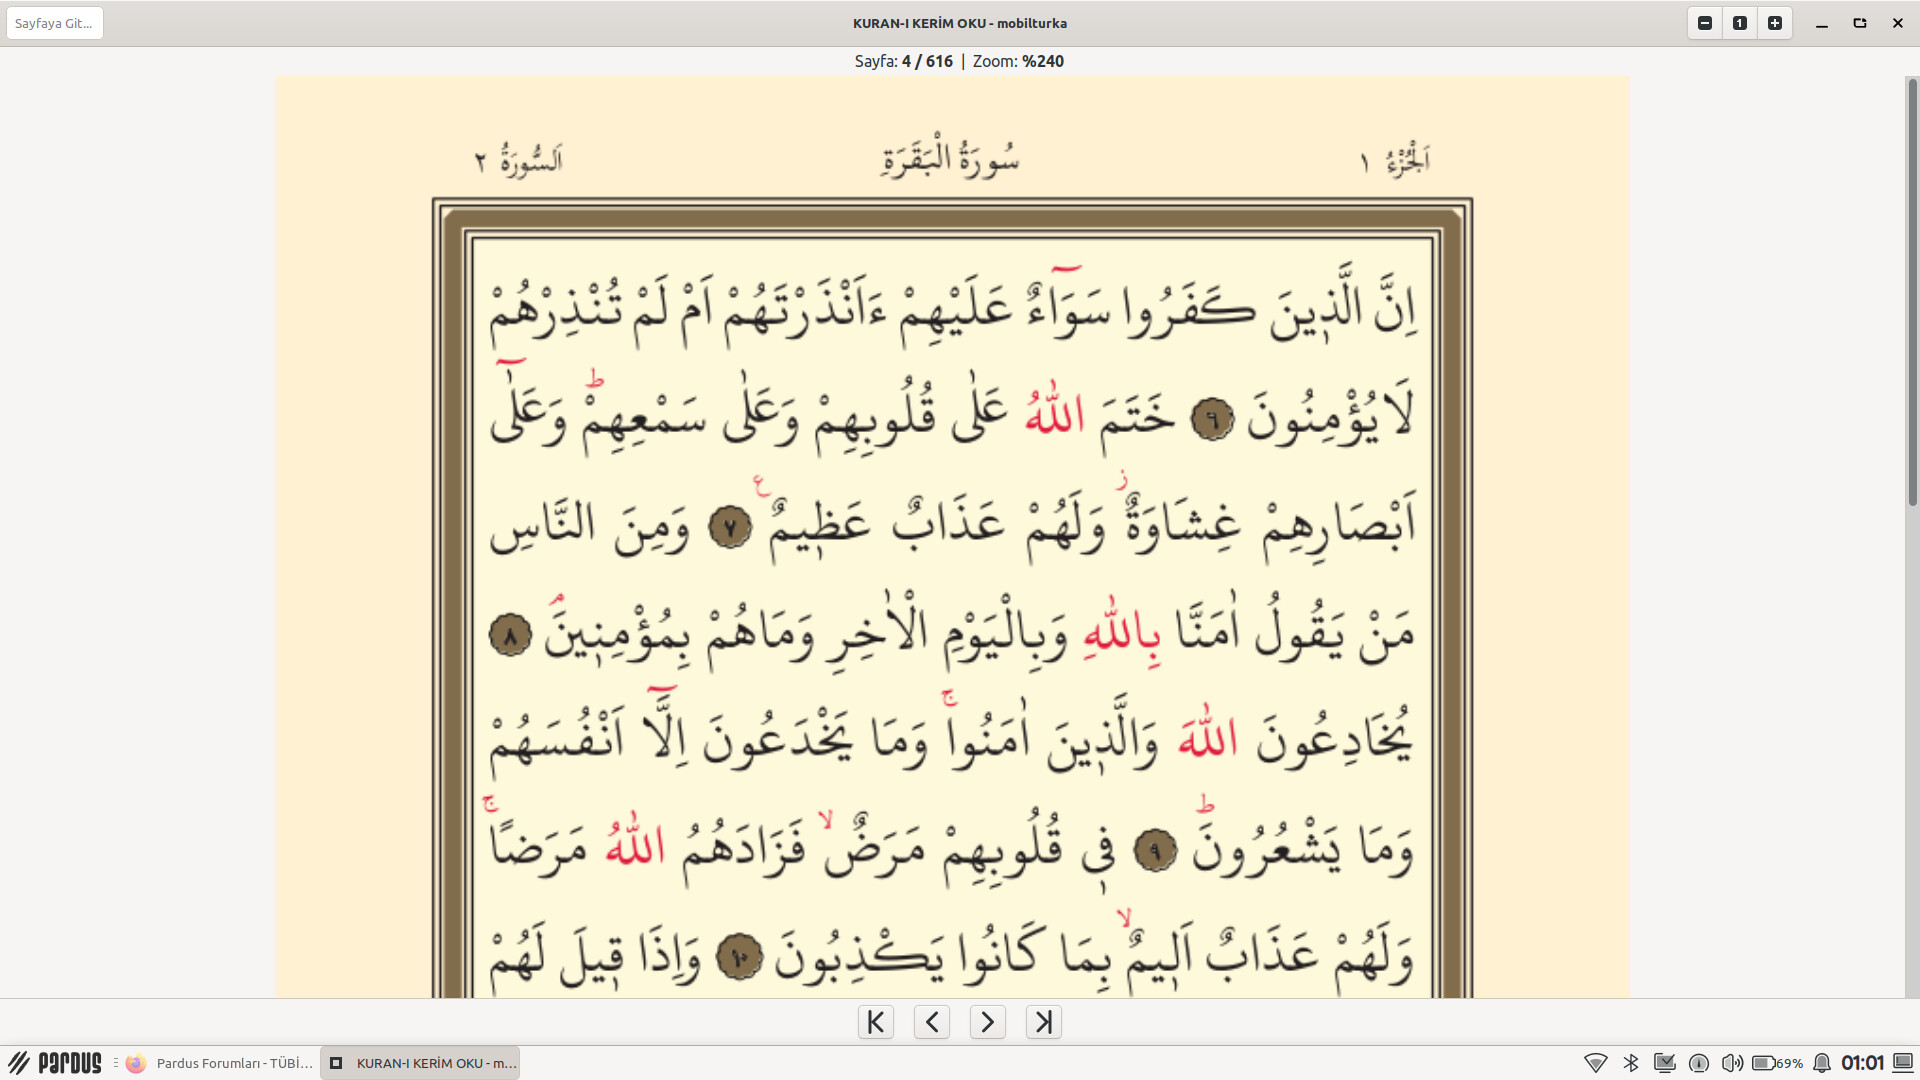 Sayfaya Git...
KURAN-I KERİM OKU - mobilturka
1
Sayfa: 4 / 616 | Zoom: %240
اَلْجُزْءُ ١
سُورَةُ الْبَقَرَةِ
اَلسُّورَةُ ٢
اِنَّ الَّذ۪ينَ كَفَرُوا سَوَٓاءٌ عَلَيْهِمْ ءَاَنْذَرْتَهُمْ اَمْ لَمْ تُنْذِرْهُمْ
لَا يُؤْمِنُونَ ٦ خَتَمَ اللّٰهُ عَلٰى قُلُوبِهِمْ وَعَلٰى سَمْعِهِمْۜ وَعَلٰٓى
اَبْصَارِهِمْ غِشَاوَةٌۘ وَلَهُمْ عَذَابٌ عَظ۪يمٌ ع ٧ وَمِنَ النَّاسِ
مَنْ يَقُولُ اٰمَنَّا بِاللّٰهِ وَبِالْيَوْمِ الْاٰخِرِ وَمَاهُمْ بِمُؤْمِن۪ينَۢ ٨
يُخَادِعُونَ اللّٰهَ وَالَّذ۪ينَ اٰمَنُواۚ وَمَا يَخْدَعُونَ اِلَّٓا اَنْفُسَهُمْ
وَمَا يَشْعُرُونَۜ ٩ ف۪ي قُلُوبِهِمْ مَرَضٌۙ فَزَادَهُمُ اللّٰهُ مَرَضًاۚ
وَلَهُمْ عَذَابٌ اَل۪يمٌۙ بِمَا كَانُوا يَكْذِبُونَ ١٠ وَاِذَا ق۪يلَ لَهُمْ
PARDUS
Pardus Forumları - TÜBİ...
KURAN-I KERİM OKU - m...
69%
01:01